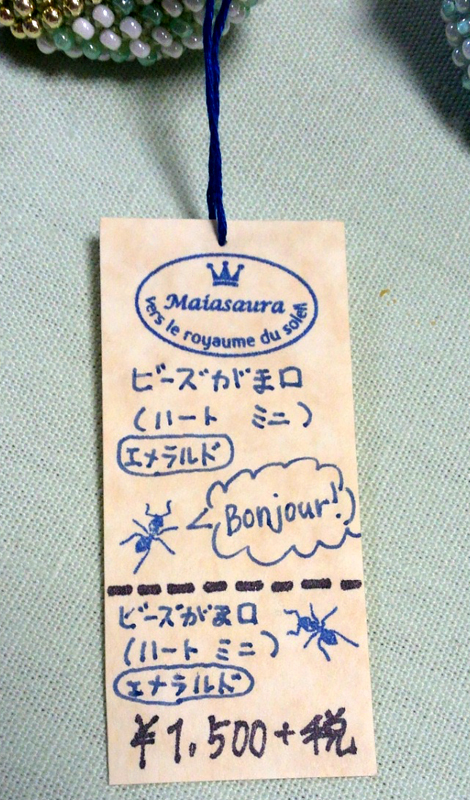 Maiasaura
vers le royaume du soleil
ビーズがま口
(ハート ミニ)
エメラルド
Bonjour!
ビーズがま口
(ハート ミニ)
エメラルド
¥1,500+税